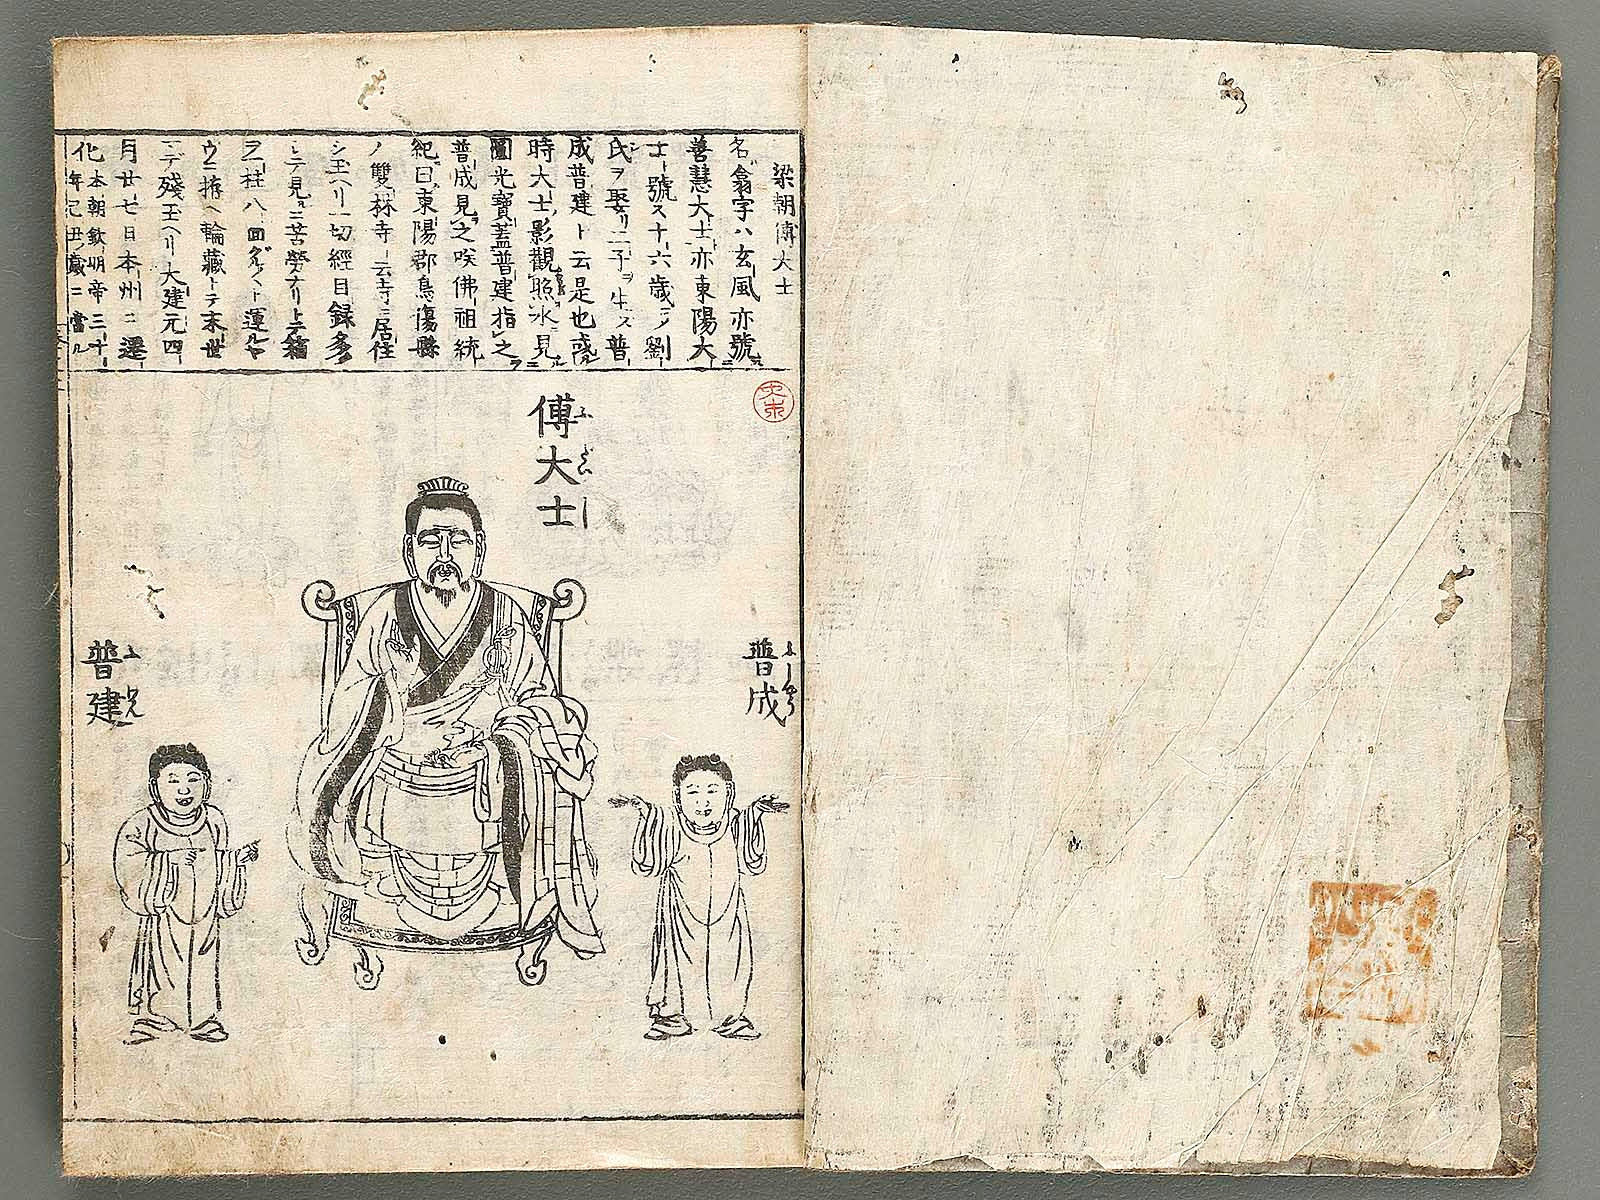 梁朝傅大士
名ハ翕字ハ玄風亦號ス
善慧大士亦東陽大
士ト號ス十六歳ニシテ劉
氏ヲ娶リ二子ヲ生ス普
成普建ト云是也或
時大士影觀照水ニ見ル
圓光寶蓋普建指レ之ヲ
普成見テレ之咲佛祖統
紀曰東陽郡烏傷縣
ノ雙林寺ト云寺ニ居住
シ玉ヘリ一切經目録多
シテ見ルニ苦勞ナリトテ箱
ニ柱八面グルグルト運ルヤ
ウニ拵ヘ輪藏トテ末世
ニデ殘玉ヘリ大建元四
月廿七日本州ニ遷
化本朝欽明帝三十
年己丑ノ歳ニ當ル
傅大士
ふだいし
普成
ふじやう
普建
ふけん